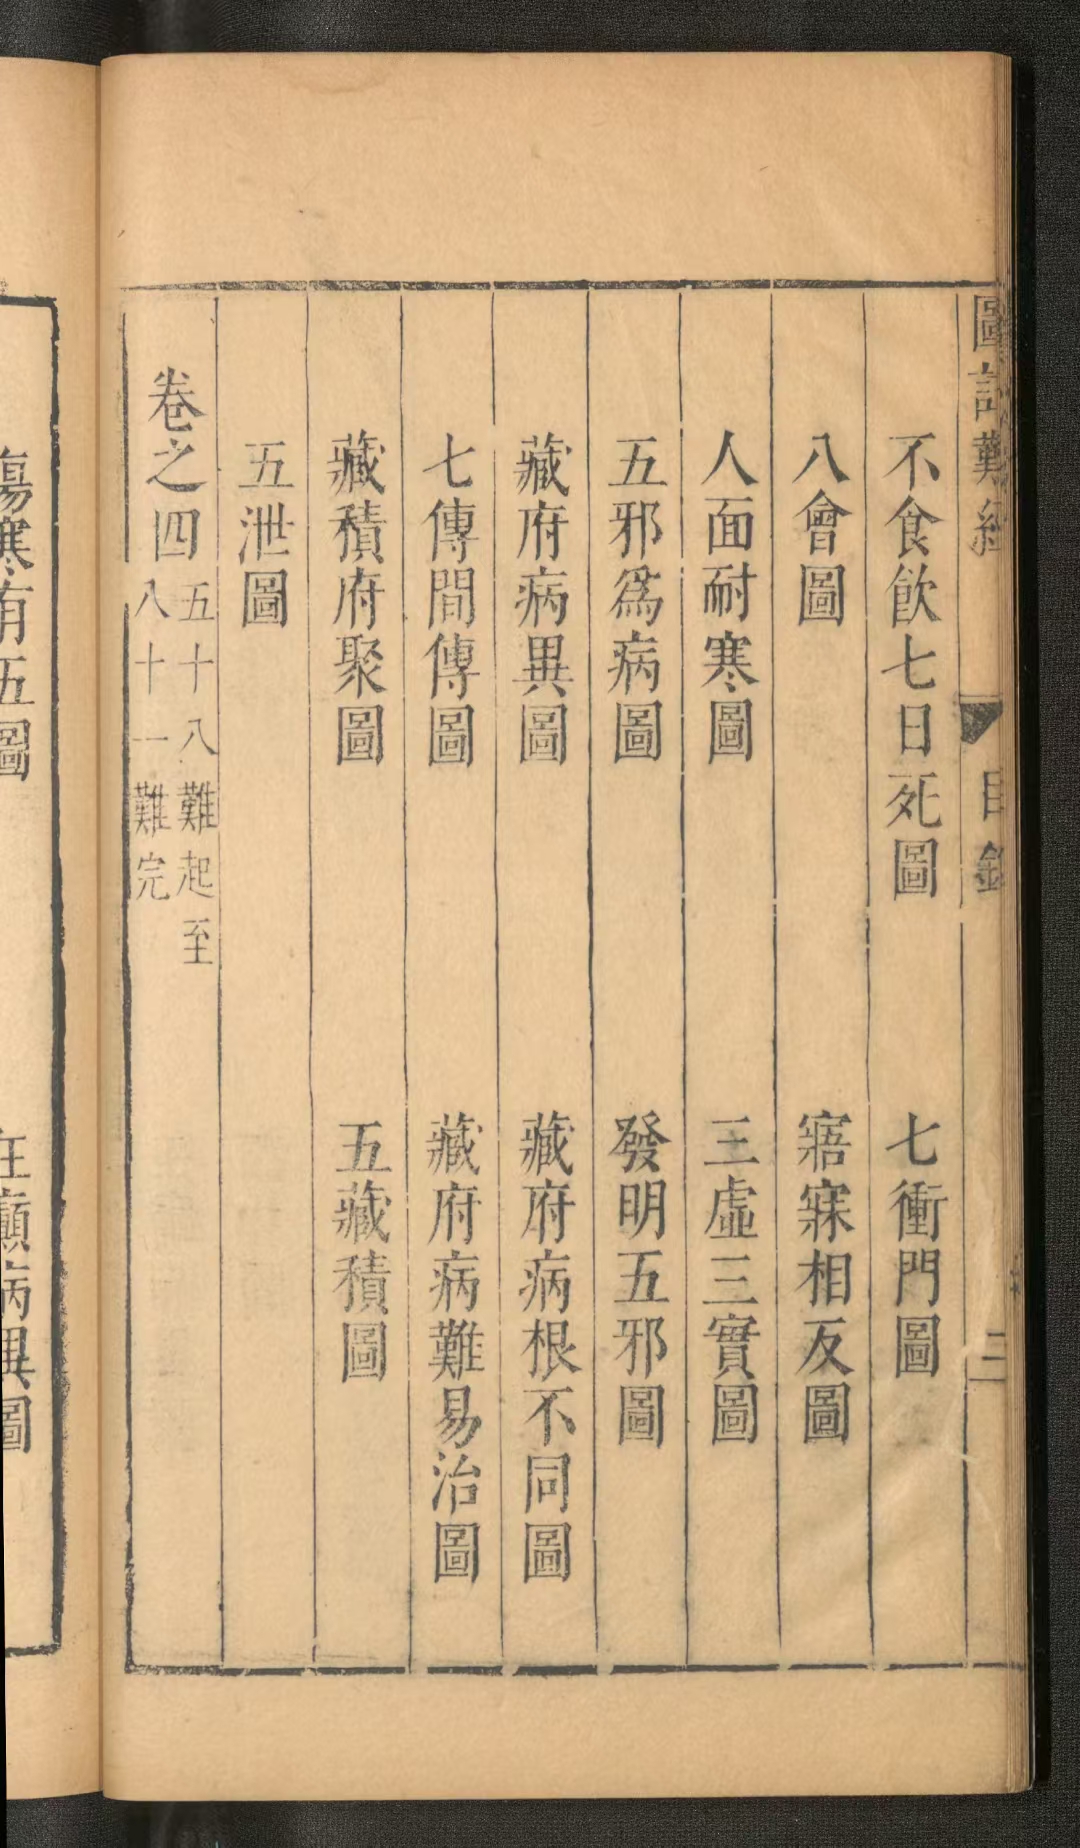 圖註難經
目錄
三
不食飲七日死圖
七衝門圖
八會圖
寤寐相反圖
人面耐寒圖
三虛三實圖
五邪爲病圖
發明五邪圖
藏府病異圖
藏府病根不同圖
七傳間傳圖
藏府病難易治圖
藏積府聚圖
五藏積圖
五泄圖
卷之四
五十八難起至
八十一難完
傷寒有五圖
狂癲病異圖